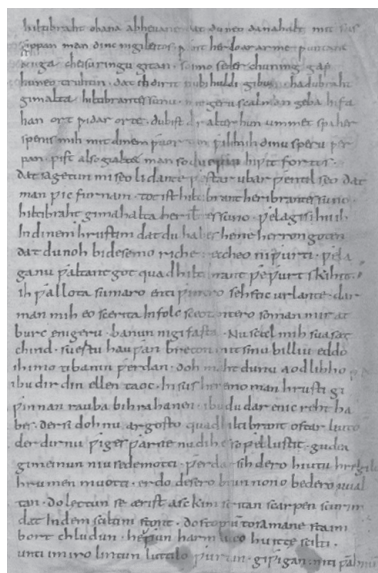 hiltibraht obana abheuane dat du neo danahalt mit sus
sippan man dinc ni gileitos ƿant her do ar arme ƿuntane
bouga cheisuringu gitan · so imo seder chuning gap
huneo truhtin · dat ih dir it nu bi huldi gibu · hadubraht
gimalta hiltibrantes sunu · mit geru scal man geba infa
han ort ƿidar orte · du bist dir alter hun ummet spaher
spenis mih mit dinem ƿortun ƿili mih dinu speru ƿer
pan · pist also gialtet man so du eƿin inƿit fortos ·
dat sagetun mi seo lidante ƿestar ubar ƿentilseo dat
man ƿic furnam · tot ist hiltibrant heribrantes suno ·
hiltibraht gimahalta heribtes suno · ƿela gisihu ih
in dinem hrustim dat du habes heme herron goten
dat du noh bi desemo riche reccheo ni ƿurti · ƿela
ga nu ƿaltant got quad hiltibrant ƿeƿurt skihit ·
ih ƿallota sumaro enti ƿintro sehstic urlante · dar
man mih eo scerita in folc sceotantero so man mir at
burc enigeru · banun ni gifasta · Nu scal mih suasat
chind · suertu hauƿan breton mit sinu billiu eddo
ih imo ti banin ƿerdan · doh maht du nu aodlihho
ibu dir din ellen taoc · In sus heremo man hrusti gi
ƿinnan rauba bihrahanen · ibu du dar enic reht ha
bes · der si doh nu argosto quad hiltibrant ostar liuto
der dir nu ƿiges ƿarne nu dih es so ƿel lustit · gudea
gimeinun niuse de motti · ƿerdar sih dero hiutu hregilo
hrumen muotti · erdo desero brunnono bedero uual
tan · do lettun se ærist asckim scritan scarpen scurim
dat in dem sciltim stont · do stoptun to samane staim
bort chludun · heƿun harmlicco huitte scilti ·
unti im iro lintun luttilo ƿurtun · giƿigan miti ƿabnum